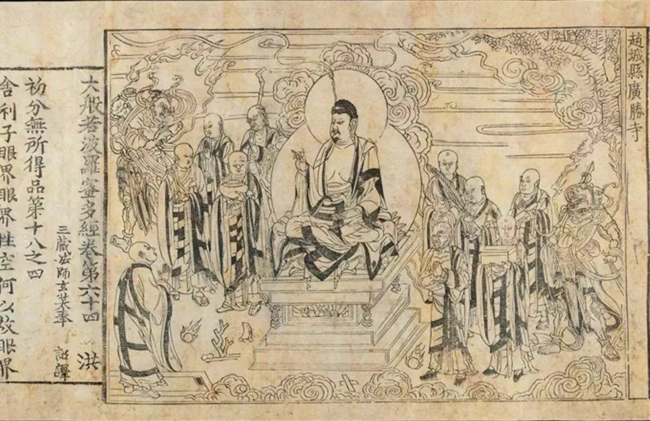 趙城縣廣勝寺
大般若波羅蜜多經卷第六十四 洪
三藏法師玄奘奉 詔譯
初分無所得品第十八之四
舍利子眼界眼界性空何以故眼界